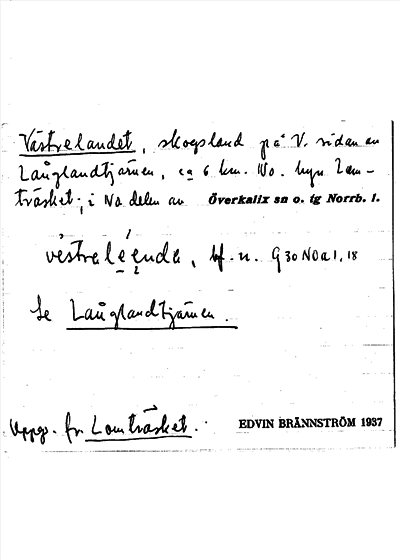 Västrelandet, skogsland på V. sidan av
Långlandtjärnen, ca 6 km. No. byn Lom-
träsket; i No delen av Överkalix sn o. tg Norrb. l.
bf. n. G 30 NO a 1, 18
Se Långlandtjärnen.
Uppg. fr. Lomträsket.
EDVIN BRÄNNSTRÖM 1937